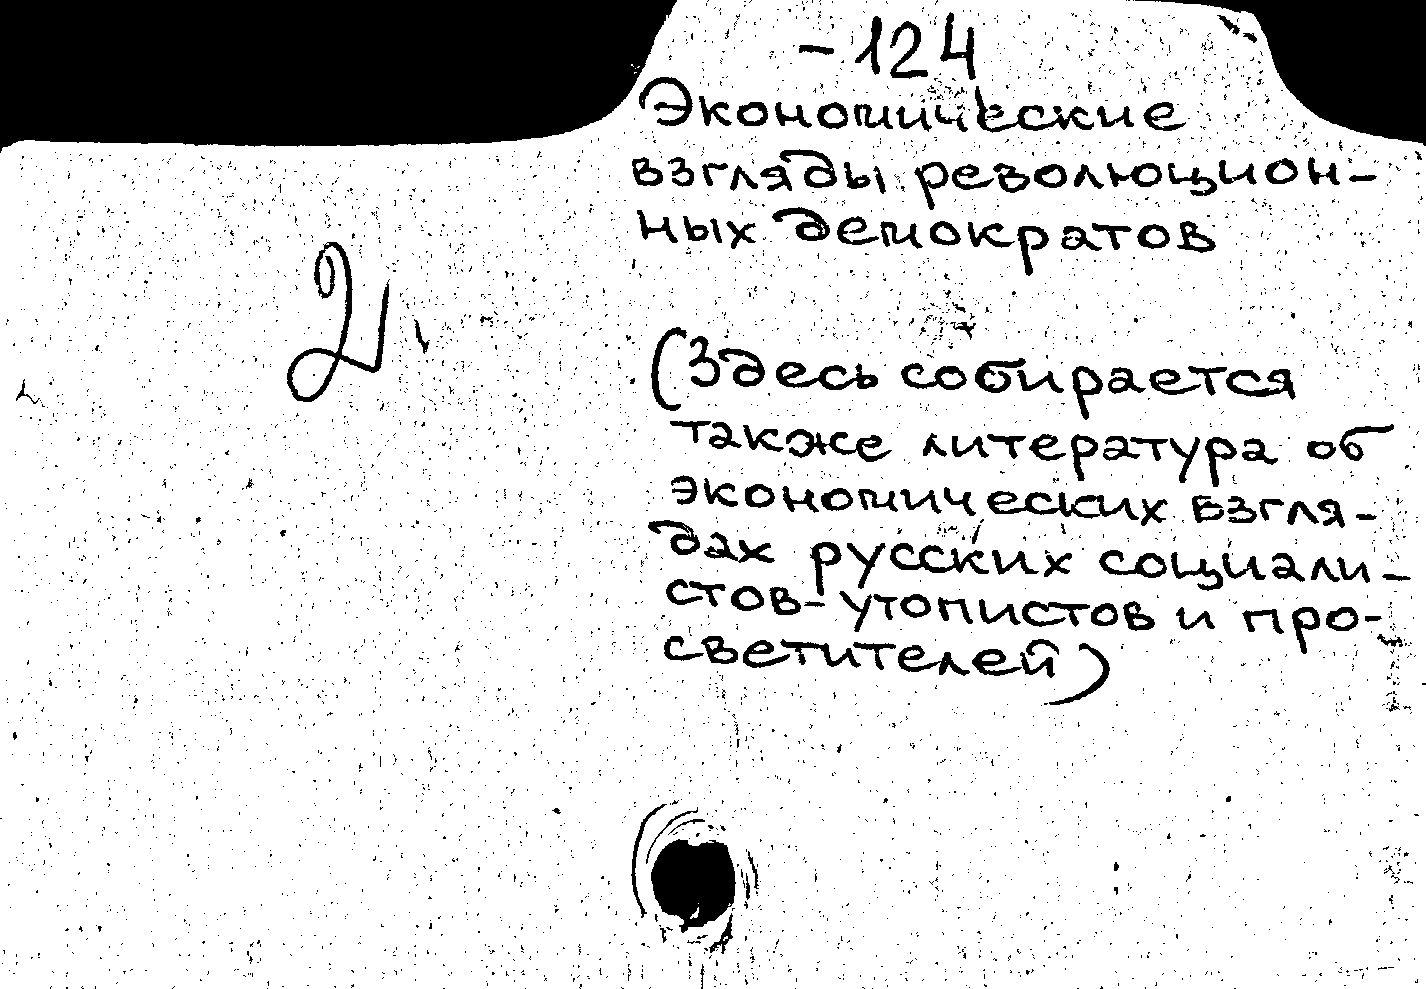 -124
Экономические
взгляды революцион-
ных демократов
2.
(Здесь собирается
также литература об
экономических взгля-
дах русских социали-
стов-утопистов и про-
светителей)